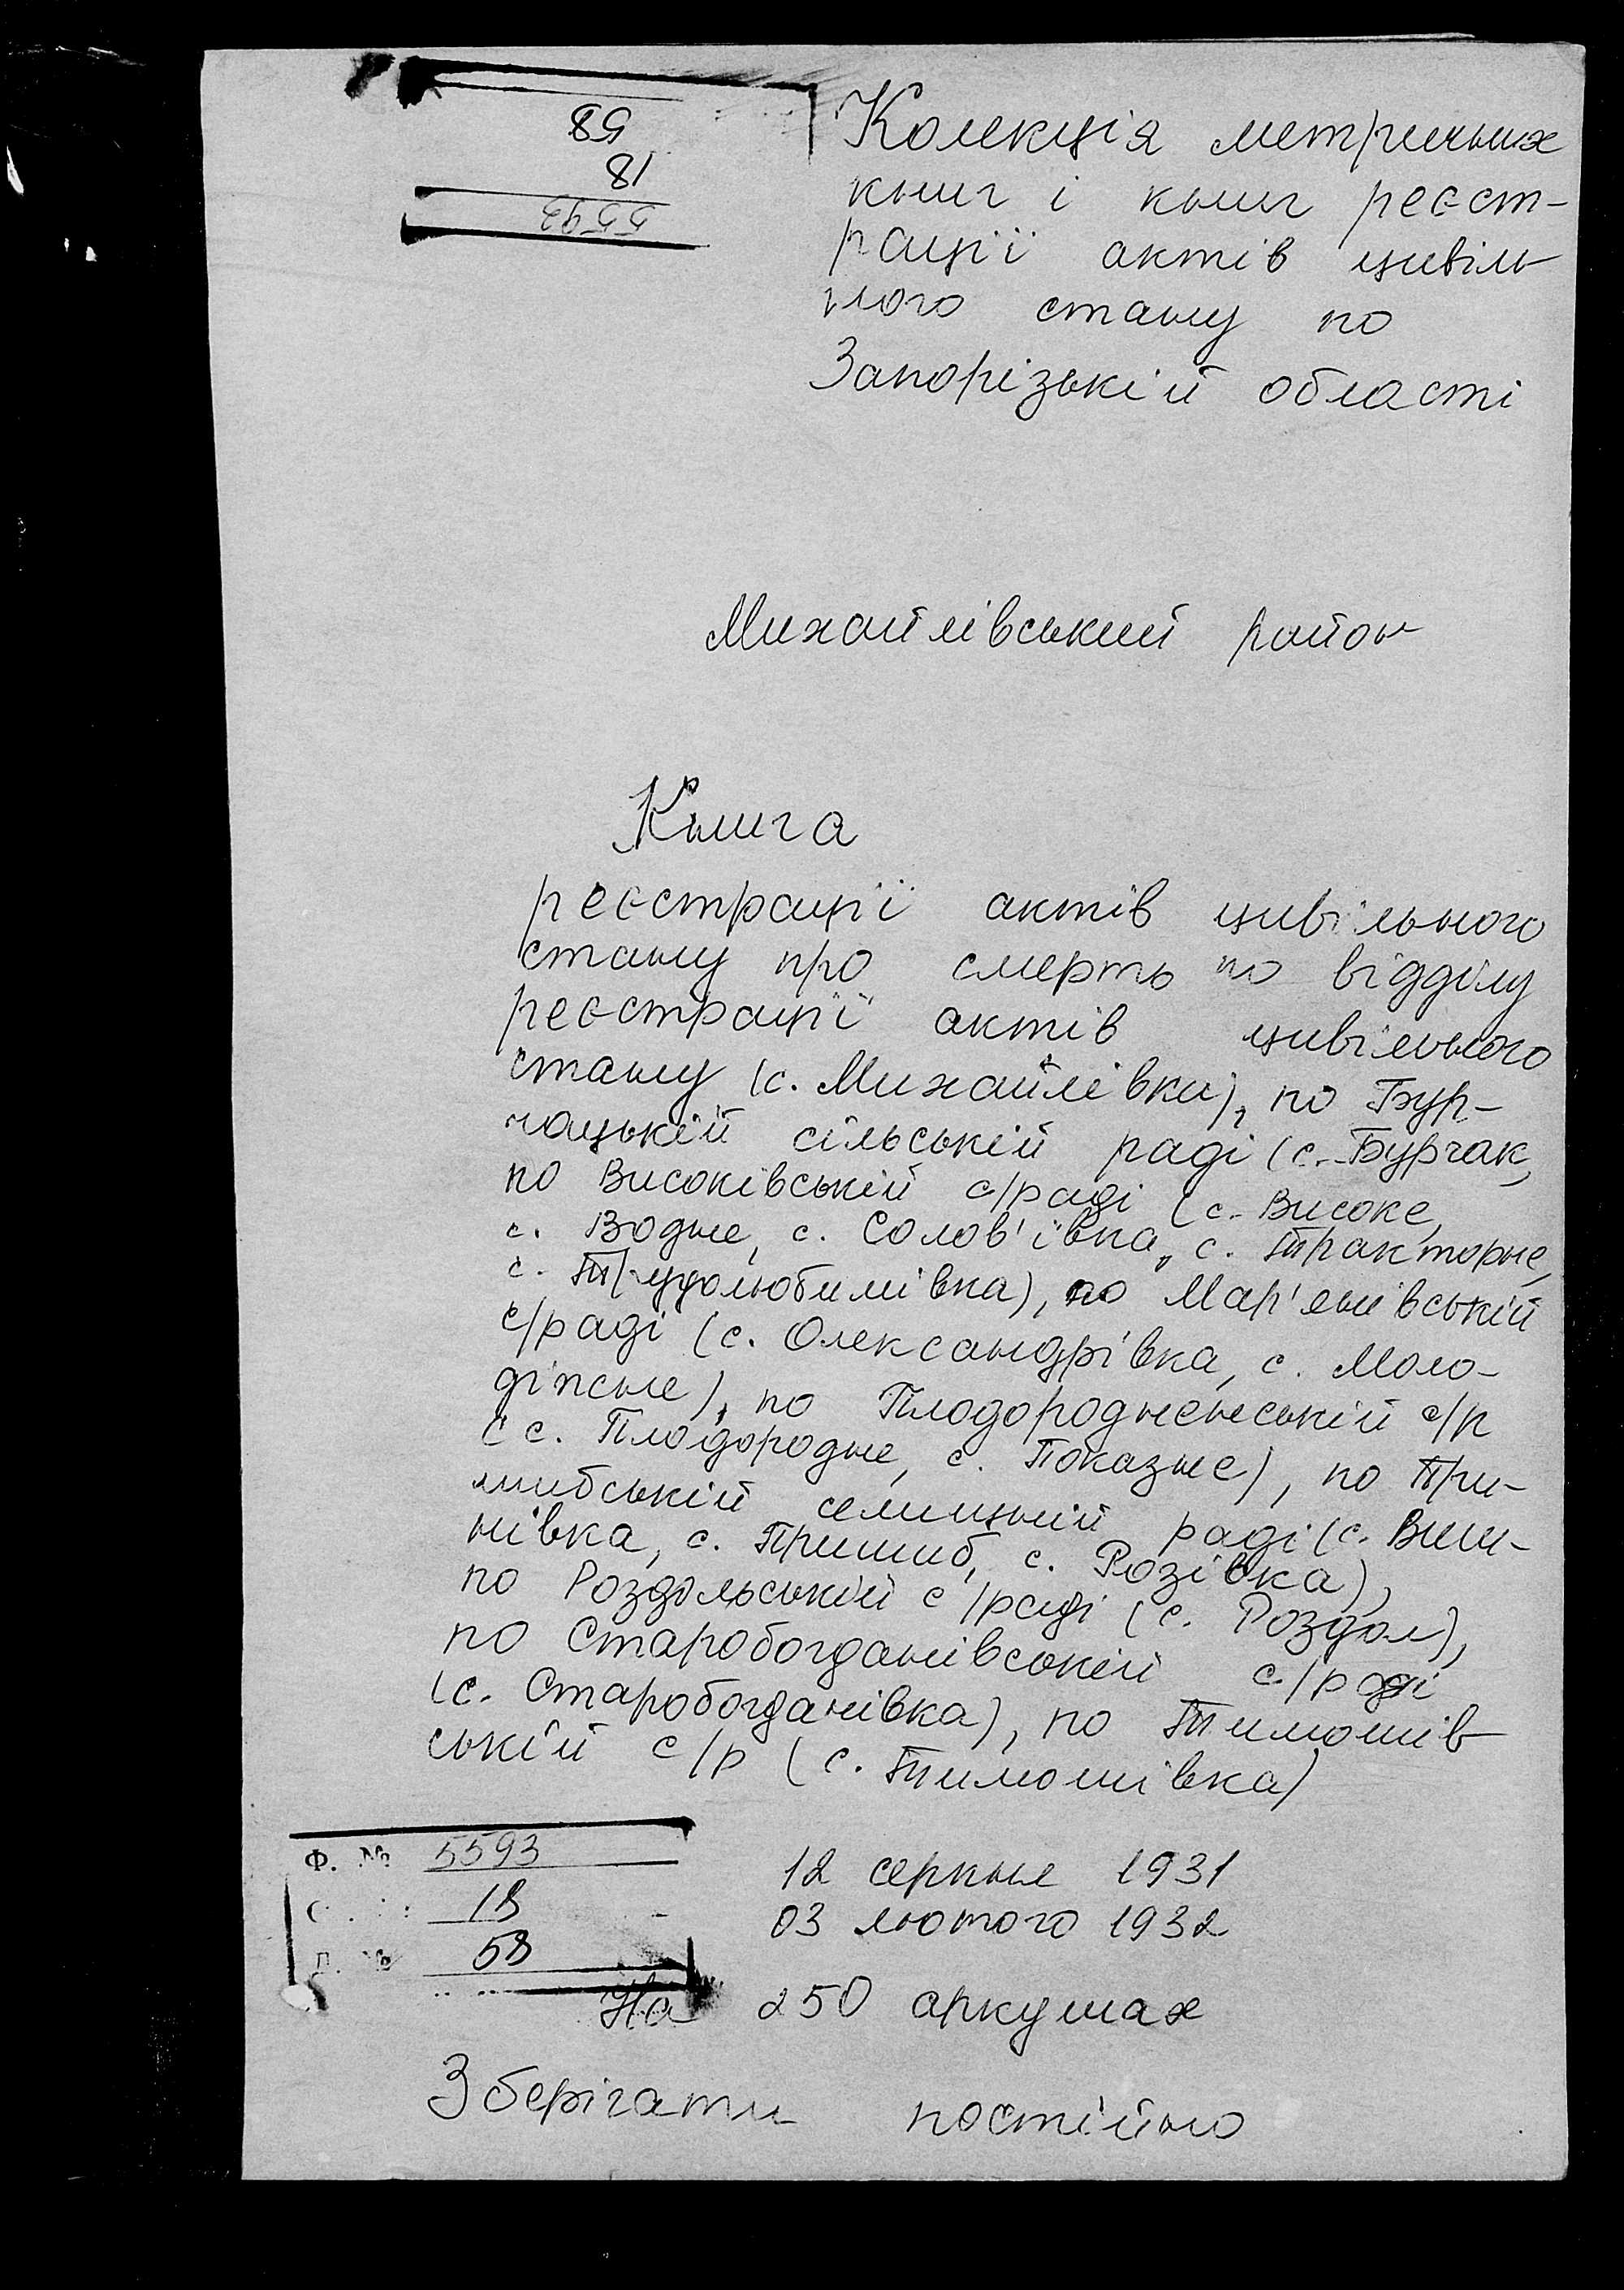 58
18
5593
Колекція метричних
книг і книг реєст-
рації актів цивіль
ного стану по
Запорізькій області
Михайлівський район
Книга
реєстрації актів цивільного
стану про смерть по відділу
реєстрації актів цивільного
стану (с. Михайлівки), по Бур-
чацькій сільській раді (с. Бурчак,
по Високівській с/раді (с. Високе,
с. Водне, с. Солов'ївка, с. Тракторне,
с. Трудолюбимівка), по Мар'янівській
с/раді (с. Олександрівка, с. Моло-
діжне), по Плодородненській с/р
(с. Плодородне, с. Показне), по При-
шибській селищній раді (с. Виш-
нівка, с. Пришиб, с. Розівка),
по Роздольській с/раді (с. Роздол),
по Старобогданівській с/раді
(с. Старобогданівка), по Тимошів
ській с/р (с. Тимошівка)
Ф. № 5593
18
58
12 серпня 1931
03 лютого 1932
На 250 аркушах
Зберігати постійно